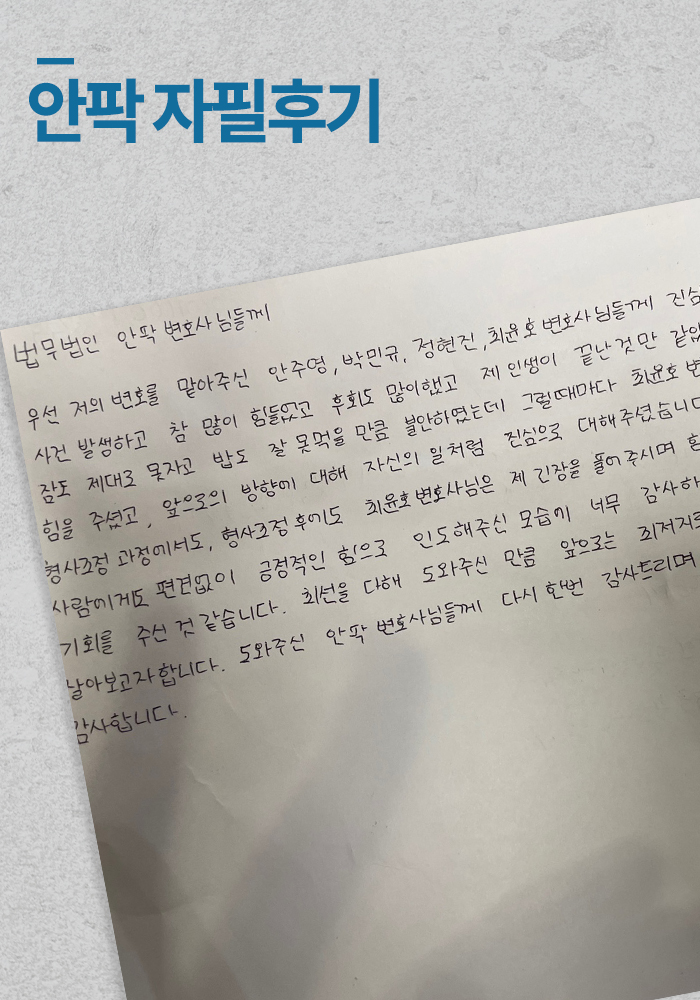 안팍 자필후기
법무법인 안팍 변호사님들께
우선 저의 변호를 맡아주신 안주영, 박민규, 정현진, 최윤호 변호사님들께 진심
사건 발생하고 참 많이 힘들었고 후회도 많이했고 제 인생이 끝난것만 같았
잠도 제대로 못자고 밥도 잘 못먹을 만큼 불안하였는데 그럴때마다 최윤호 변
힘을 주셨고, 앞으로의 방향에 대해 자신의 일처럼 진심으로 대해주셨습니다
형사조정 과정에서도, 형사조정 후에도 최윤호 변호사님은 제 긴장을 풀어주시며
사람에게도 편견없이 긍정적인 힘으로 인도해주신 모습에 너무 감사하
기회를 주신 것 같습니다. 최선을 다해 도와주신 만큼 앞으로는
날아보고자 합니다. 도와주신 안팍 변호사님들께 다시 한번 감사드리며
감사합니다.